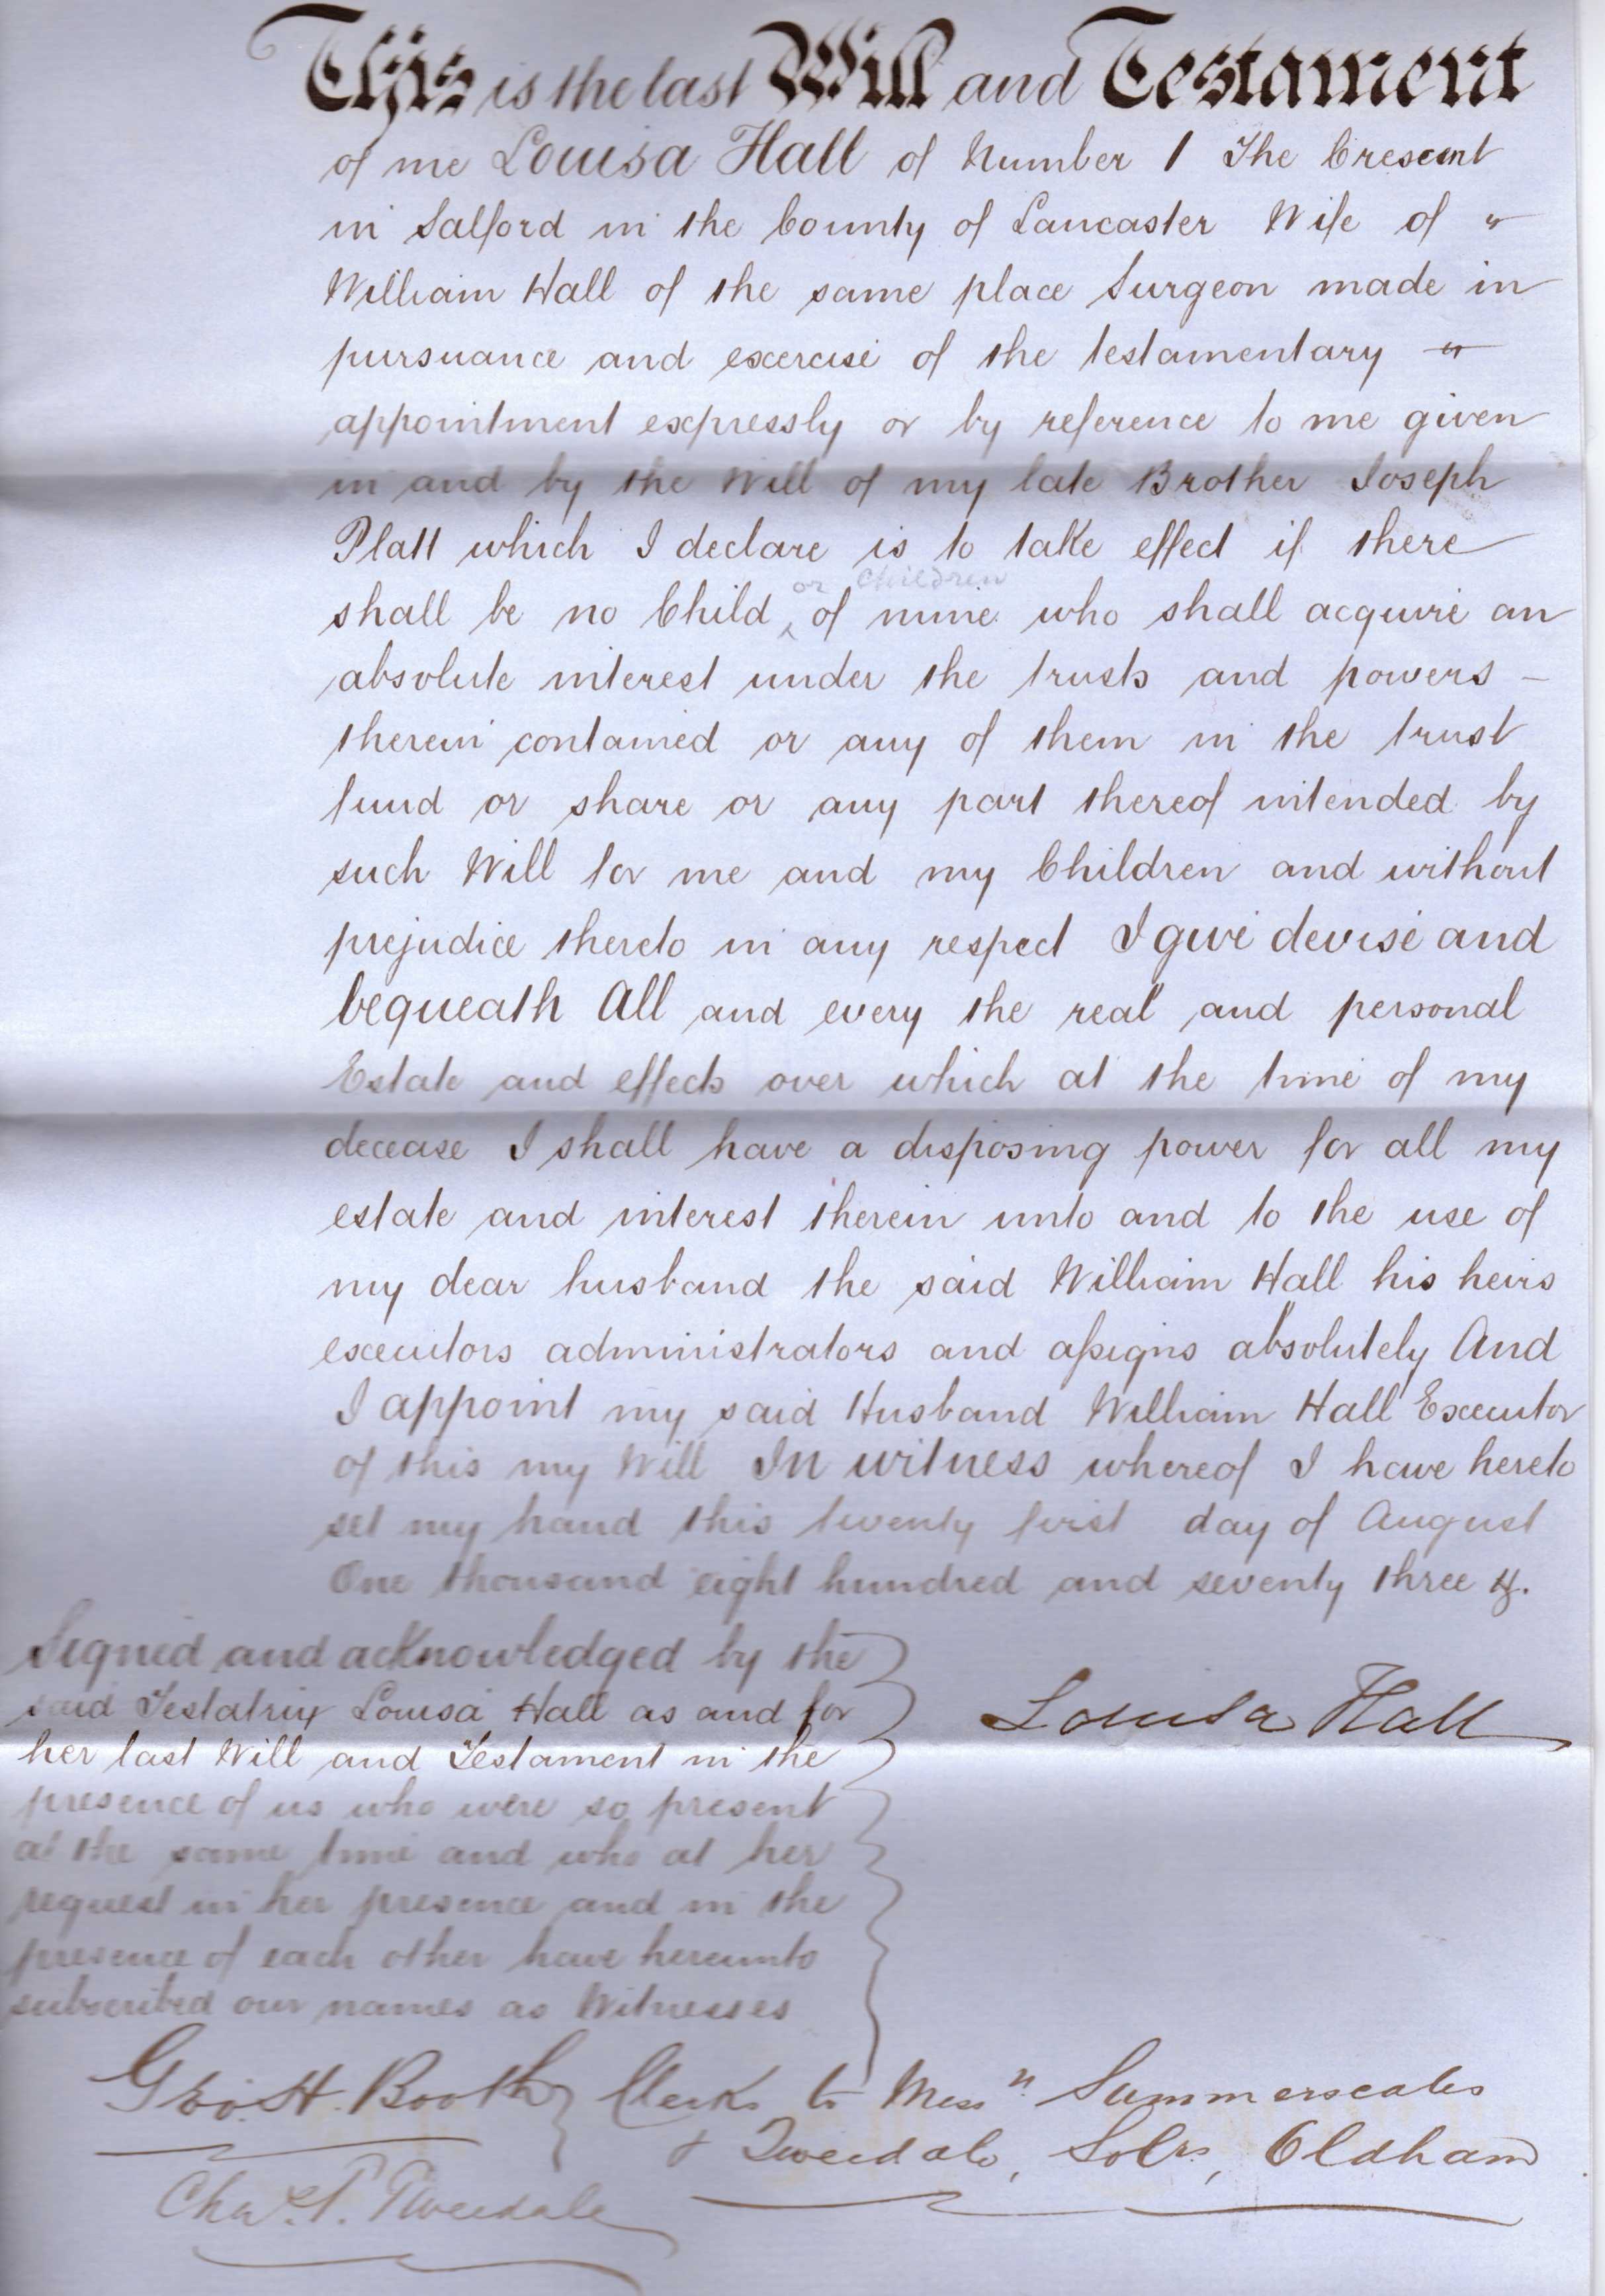 This is the last Will and Testament
of me Louisa Hall of Number 1 The Crescent
in Salford in the County of Lancaster Wife of "
William Hall of the same place Surgeon made in
pursuance and excercise of the testamentary "
appointment expressly or by reference to me given
in and by the Will of my late Brother Joseph
Platt which I declare is to take effect if there
or Children
shall be no Child ‸ of mine who shall acquire an
absolute interest under the trusts and powers –
therein contained or any of them in the trust
fund or share or any part thereof intended by
such Will for me and my Children and without
prejudice thereto in any respect I give devise and
bequeath All and every the real and personal
Estate and effects over which at the time of my
decease I shall have a disposing power for all my
estate and interest therein unto and to the use of
my dear husband the said William Hall his heirs
executors administrators and assigns absolutely And
I appoint my said Husband William Hall Executor
of this my Will In witness whereof I have hereto
set my hand this twenty first day of August
One thousand eight hundred and seventy three
Signed and acknowledged by the
said Testatrix Louisa Hall as and for
Louisa Hall
her last Will and Testament in the
presence of us who were so present
at the same time and who at her
request in her presence and in the
presence of each other have hereunto
subscribed our names as Witnesses
Geo. H. Booth } Clerks to Messrs. Summerscales
& Tweedale, Solrs, Oldham
Chas. Tweedale